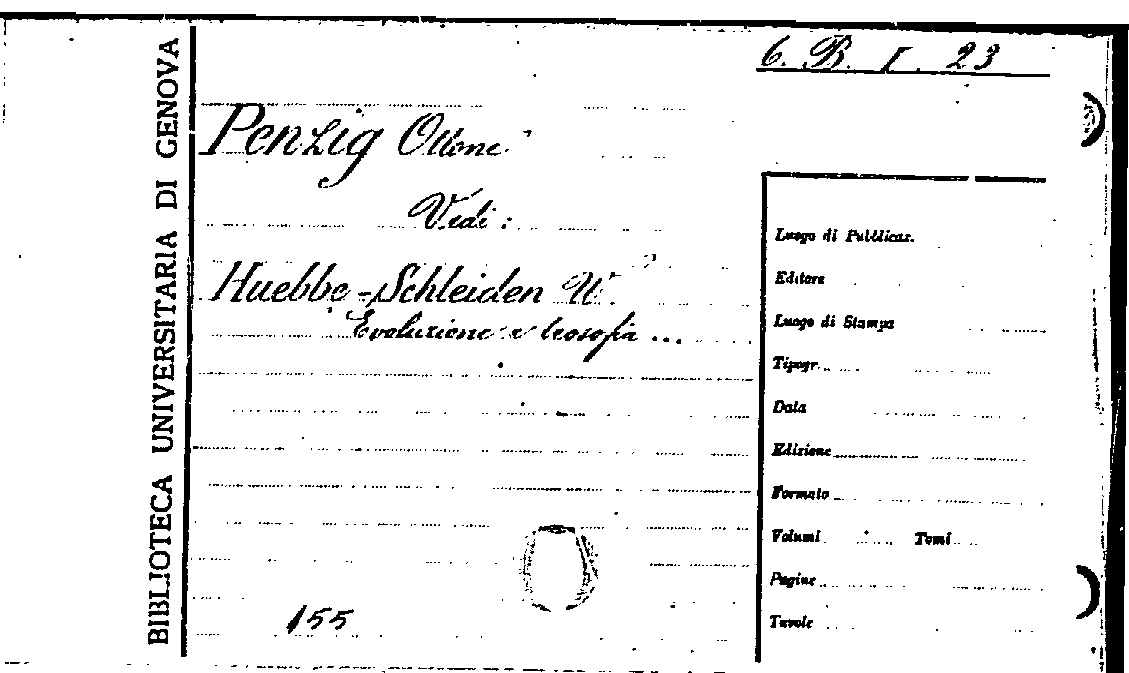 BIBLIOTECA UNIVERSITARIA DI GENOVA
6. B. I. 23
Penzig Ottone
Vedi:
Huebbe-Schleiden W.
Evoluzione e teosofia ...
Luogo di Pubblicaz.
Editore
Luogo di Stampa
Tipogr.
Data
Edizione
Formato
Volumi Tomi
Pagine
Tavole
155